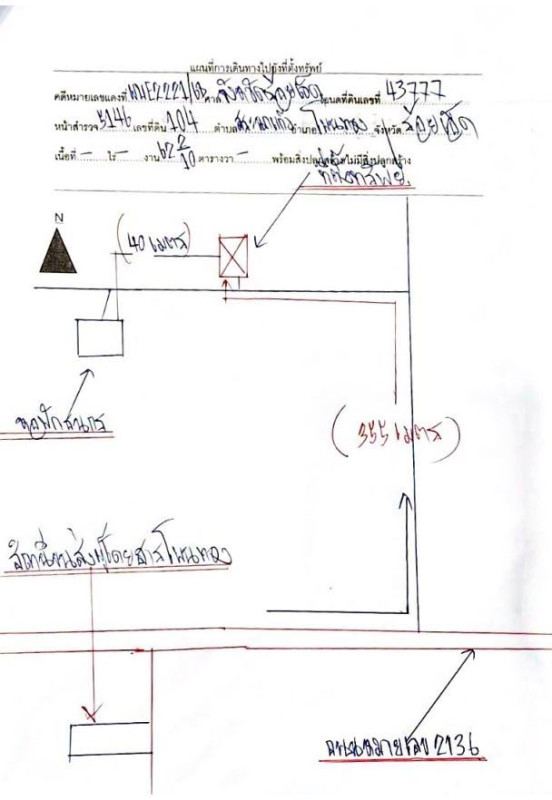 แผนที่การเดินทางไปยังที่ตั้งทรัพย์
คดีหมายเลขแดงที่ ศาล จังหวัดร้อยเอ็ด โฉนดที่ดินเลขที่ 43777
หน้าสำรวจ 5146 เลขที่ดิน 104 ตำบล สระนกแก้ว อำเภอ โพนทอง จังหวัด ร้อยเอ็ด
เนื้อที่ - ไร่ - งาน 62 2/10 ตารางวา - พร้อมสิ่งปลูกสร้าง/ไม่มีสิ่งปลูกสร้าง
ที่ตั้งทรัพย์
N
(40 เมตร)
(355 เมตร)
สถานีขนส่งผู้โดยสารโพนทอง
ถนนหมายเลข 2136